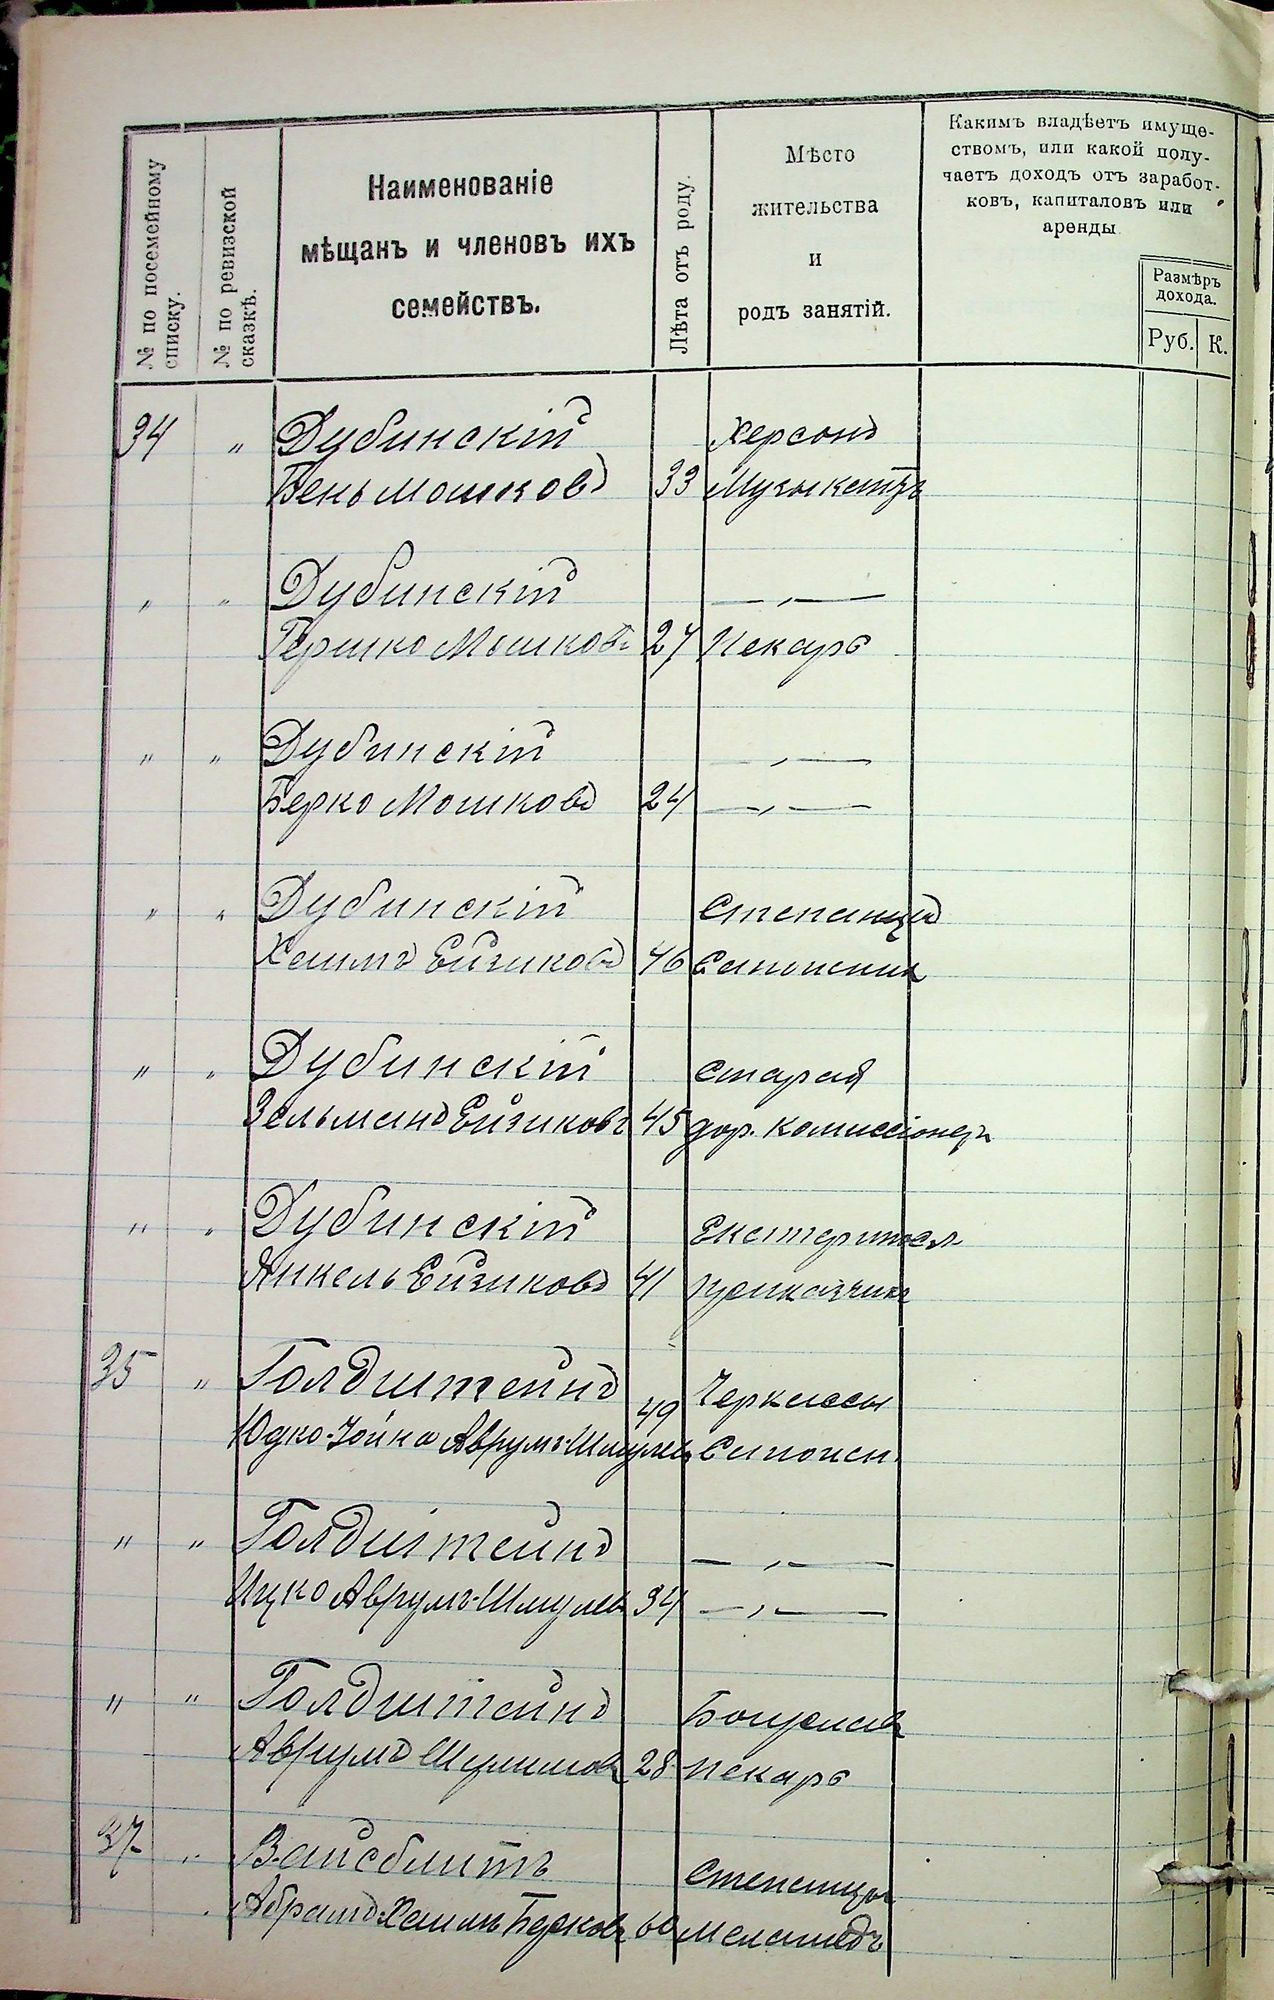 № по посемейному
списку.
№ по ревизской
сказкѣ.
Наименованіе
мѣщанъ и членовъ ихъ
семействъ.
Лѣта отъ роду.
Мѣсто
жительства
и
родъ занятій.
Какимъ владѣетъ имуще-
ствомъ, или какой полу-
чаетъ доходъ отъ заработ-
ковъ, капиталовъ или
аренды
Размѣръ
дохода.
Руб. К.
34 " Дубинскій Херсонъ
Бень Мошковъ 33 Музыкантъ
" " Дубинскій — " —
Гершко Мошковъ 27 Пекарь
" " Дубинскій — " —
Берко Мошковъ 24 — " —
" " Дубинскій Степанцы
Хаимъ Ейзиковъ 46 Сапожник
" " Дубинскій Старая
Зельманъ Ейзиковъ 45 дор. комиссіонеръ
" " Дубинскій Екатериносл.
Янкель Ейзиковъ 41 приказчикъ
35 " Голдштейнъ Черкассы
Юдко-Іойна Аврумъ-Шмулев 49 Сапожн.
" " Голдштейнъ — " —
Ицко Аврумъ-Шмулев 34 — " —
" " Голдштейнъ Богуслав
Аврумъ 28 пекарь
37 " Вайсблитъ Степанцы
Абрамъ Хаимъ Берковъ 60 меламедъ